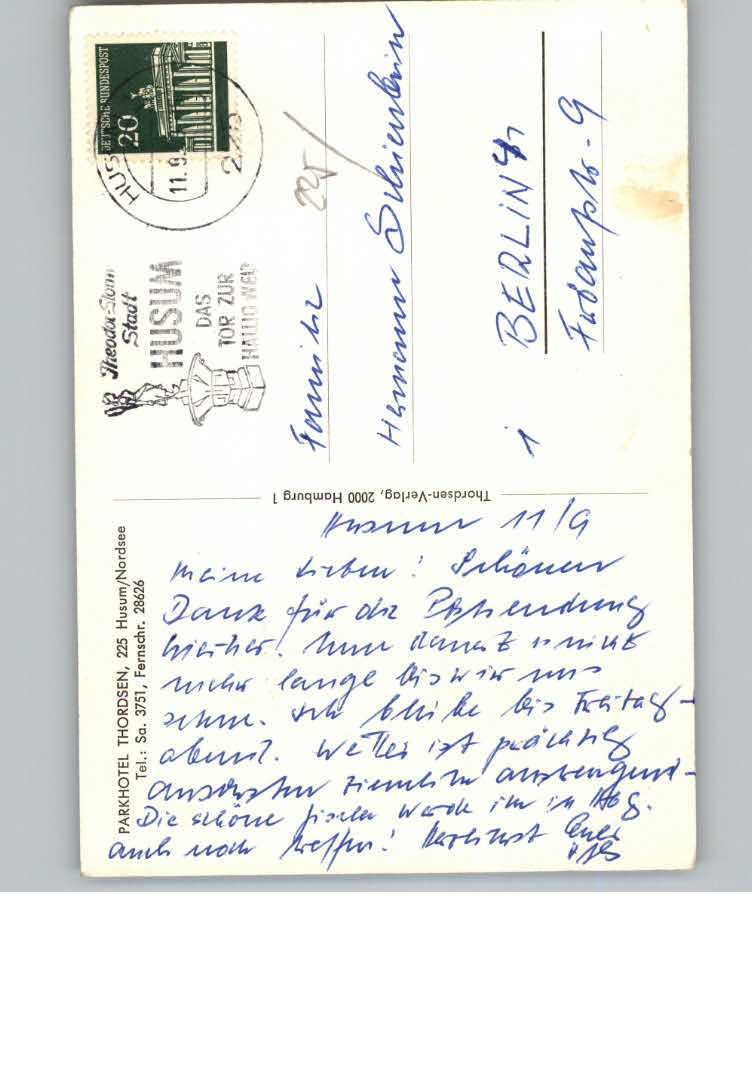 DEUTSCHE BUNDESPOST
20
HUS
11.9
Theodor-Storm
Stadt
HUSUM
DAS
TOR ZUR
HALLIG WELT
225
Familie
Hermann
BERLIN 41
i
9
Thordsen-Verlag, 2000 Hamburg 1
PARKHOTEL THORDSEN, 225 Husum/Nordsee
Tel.: Sa. 3751, Fernschr. 28626
Husum 11/9
Meine Lieben! Schönen
Dank für die Postsendung
hierher. Nun dauert's nicht
mehr lange bis wir uns
sehen. Ich bleibe bis Freitag-
abend. Wetter ist prächtig
ansonsten ziemlich anstrengend-
Die schöne werde ich in Hbg.
auch noch treffen! Herzlichst Euer